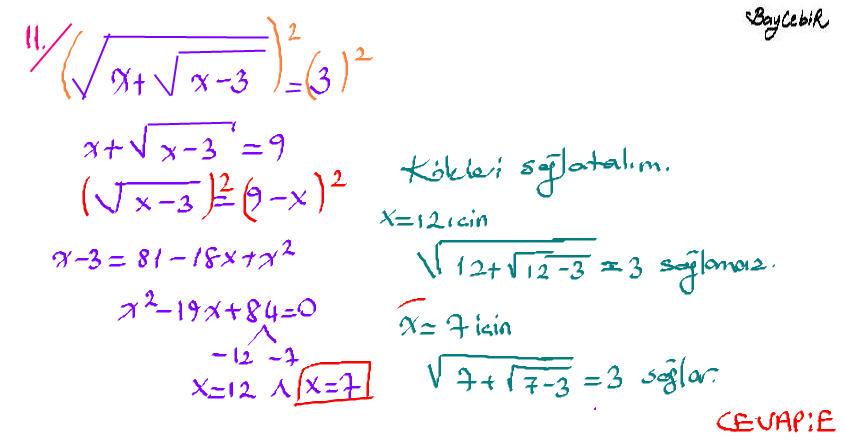 BayCebiR
11/ (√(x+√(x-3)))² = (3)²
x+√(x-3) = 9
(√(x-3))² = (9-x)²
x-3 = 81-18x+x²
x²-19x+84=0
-12 -7
x=12 ∧ x=7
Kökleri sağlatalım.
x=12 için
√(12+√(12-3)) = 3 sağlamaz.
x=7 için
√(7+√(7-3)) = 3 sağlar.
CEVAP:E